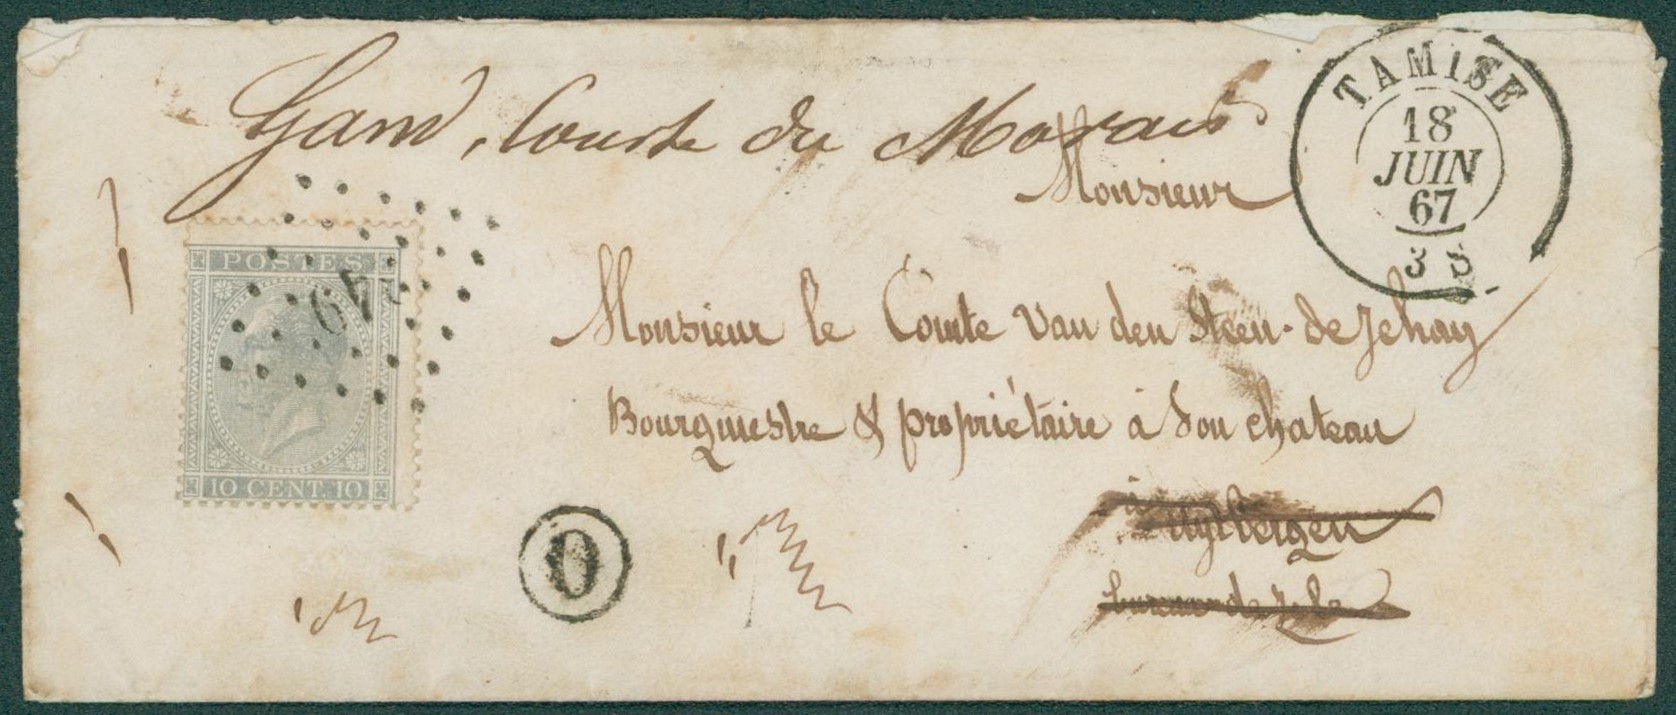 Gand, Courte du Marais
TAMISE
18
JUIN
67
3 S
Monsieur
POSTES
349
10 CENT. 10
Monsieur le Comte van den Steen de Jehay
Bourgmestre & propriétaire à son chateau
à Uytbergen
bureau de Zele
O